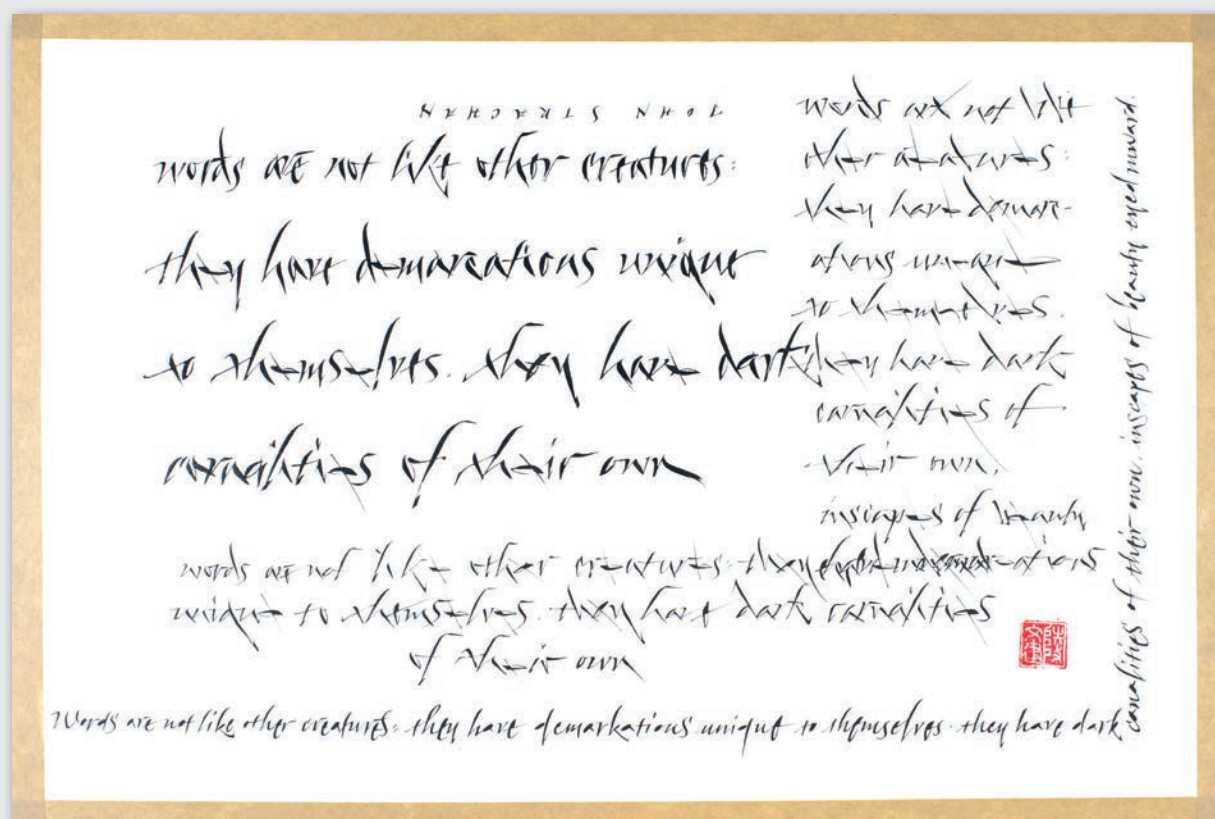 JOHN STRACHAN
words are not like other creatures:
they have demarcations unique
to themselves. they have dark
carnalities of their own
words are not like
other creatures:
they have demarc-
ations unique
to themselves.
they have dark
carnalities of
their own,
inscapes of beauty
words are not like other creatures: they
unique to themselves. they have dark carnalities
of their own
Words are not like other creatures: they have demarkations unique to themselves. they have dark
canalities of their own. inscapes of beauty eyed inward.